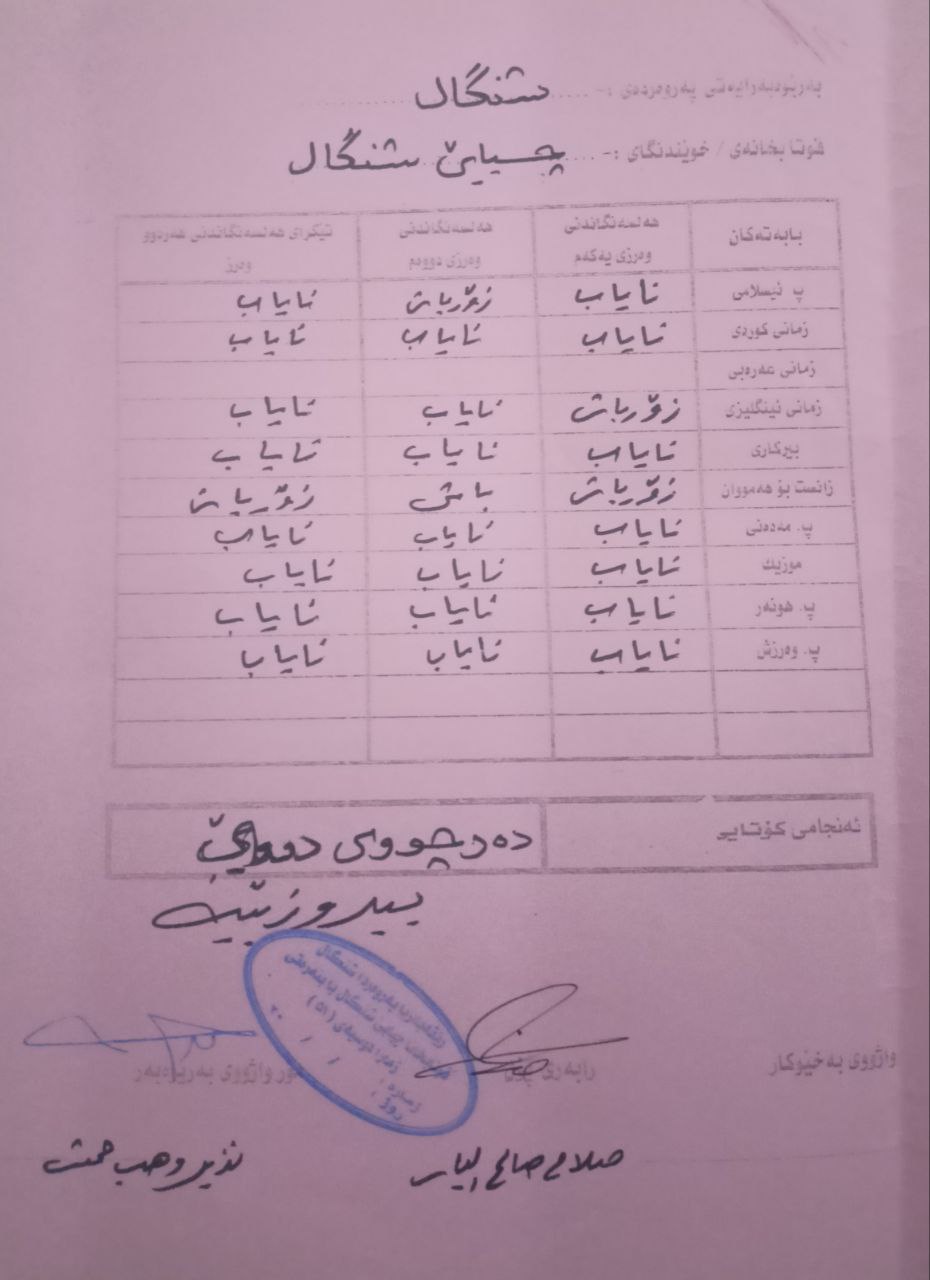 بەڕێوەبەرایەتی پەروەردەی :- شنگال
قوتابخانەی / خوێندنگای :- چیایێ شنگال
بابەتەکان هەلسەنگاندنی وەرزی یەکەم هەلسەنگاندنی وەرزی دووەم تێکڕای هەلسەنگاندنی هەردوو وەرز
پ ئیسلامی نایاب زۆرباش نایاب
زمانی کوردی نایاب نایاب نایاب
زمانی عەرەبی
زمانی ئینگلیزی زۆرباش نایاب نایاب
بیرکاری نایاب نایاب نایاب
زانست بۆ هەمووان زۆرباش باش زۆرباش
پ. مەدەنی نایاب نایاب نایاب
موزیك نایاب نایاب نایاب
پ. هونەر نایاب نایاب نایاب
پ. وەرزش نایاب نایاب نایاب
ئەنجامی کۆتایی دەرچووی دووێ
پیروزبێت
زمارە :
روژ :
واژووی بەخێوکار رابەری مۆر واژووی بەڕێوەبەر
صلاح صالح نذیر وهب